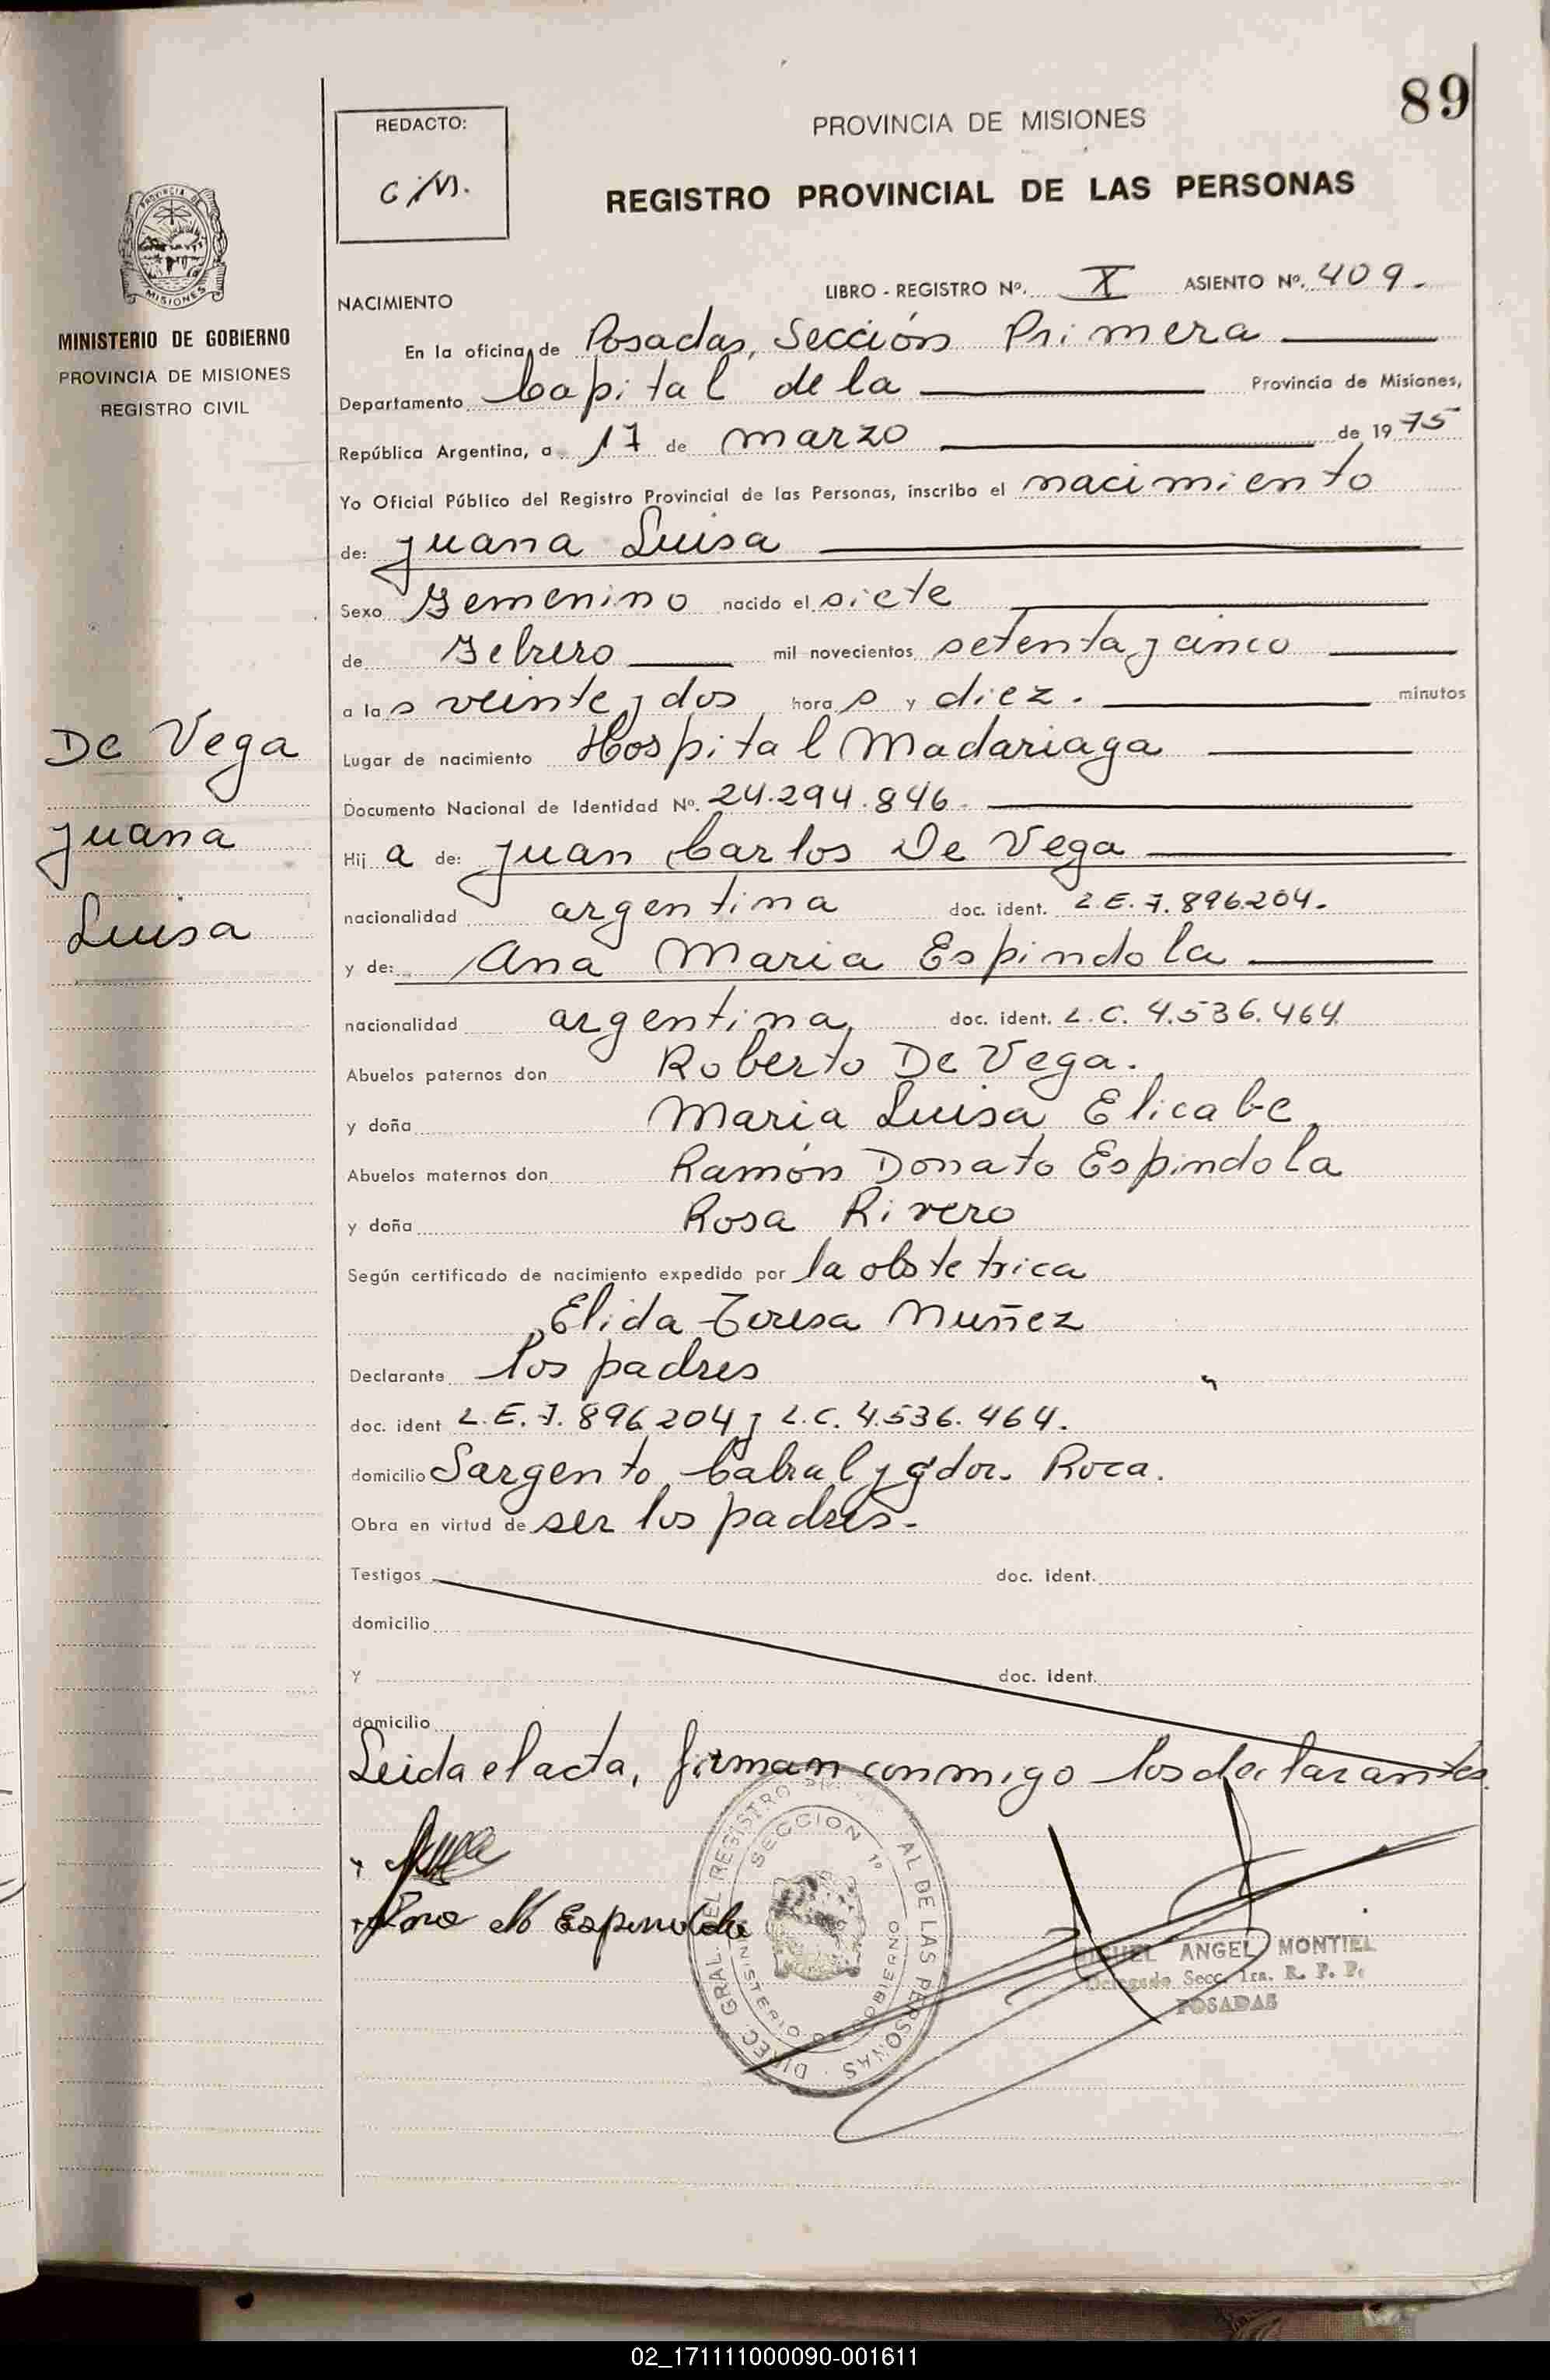 89
REDACTO:
C/M.
PROVINCIA DE MISIONES
REGISTRO PROVINCIAL DE LAS PERSONAS
PROVINCIA
MISIONES
MINISTERIO DE GOBIERNO
PROVINCIA DE MISIONES
REGISTRO CIVIL
De Vega
Juana
Luisa
LIBRO - REGISTRO Nº. X ASIENTO Nº. 409.
NACIMIENTO
En la oficina de Posadas, Sección Primera
Departamento Capital de la Provincia de Misiones,
República Argentina, a 17 de marzo de 1975
Yo Oficial Público del Registro Provincial de las Personas, inscribo el nacimiento
de: Juana Luisa
Sexo Femenino nacido el siete
de Febrero mil novecientos setenta y cinco
a las veinte y dos horas y diez. minutos
Lugar de nacimiento Hospital Madariaga
Documento Nacional de Identidad Nº. 24.294.846.
Hija de: Juan Carlos De Vega
nacionalidad argentina doc. ident. L.E. 7.896.204.
y de: Ana Maria Espindola
nacionalidad argentina, doc. ident. L.C. 4.536.464.
Abuelos paternos don Roberto De Vega.
y doña Maria Luisa Elicabe,
Abuelos maternos don Ramón Donato Espindola
y doña Rosa Rivero
Según certificado de nacimiento expedido por la obstetrica
Elida Teresa Nuñez
Declarante los padres
doc. ident L.E. 7.896.204 y L.C. 4.536.464.
domicilio Sargento Cabral y gdor. Roca.
Obra en virtud de ser los padres.
Testigos doc. ident.
domicilio
Y doc. ident.
domicilio
Leida el acta, firman conmigo los declarantes.
Ana M Espindola
DIREC. GRAL. DEL REGISTRO AL DE LAS PERSONAS
SECCION 1º
MINISTERIO DE GOBIERNO
MIGUEL ANGEL MONTIEL
Delegado Secc. 1ra. R. P. P.
POSADAS
02_171111000090-001611